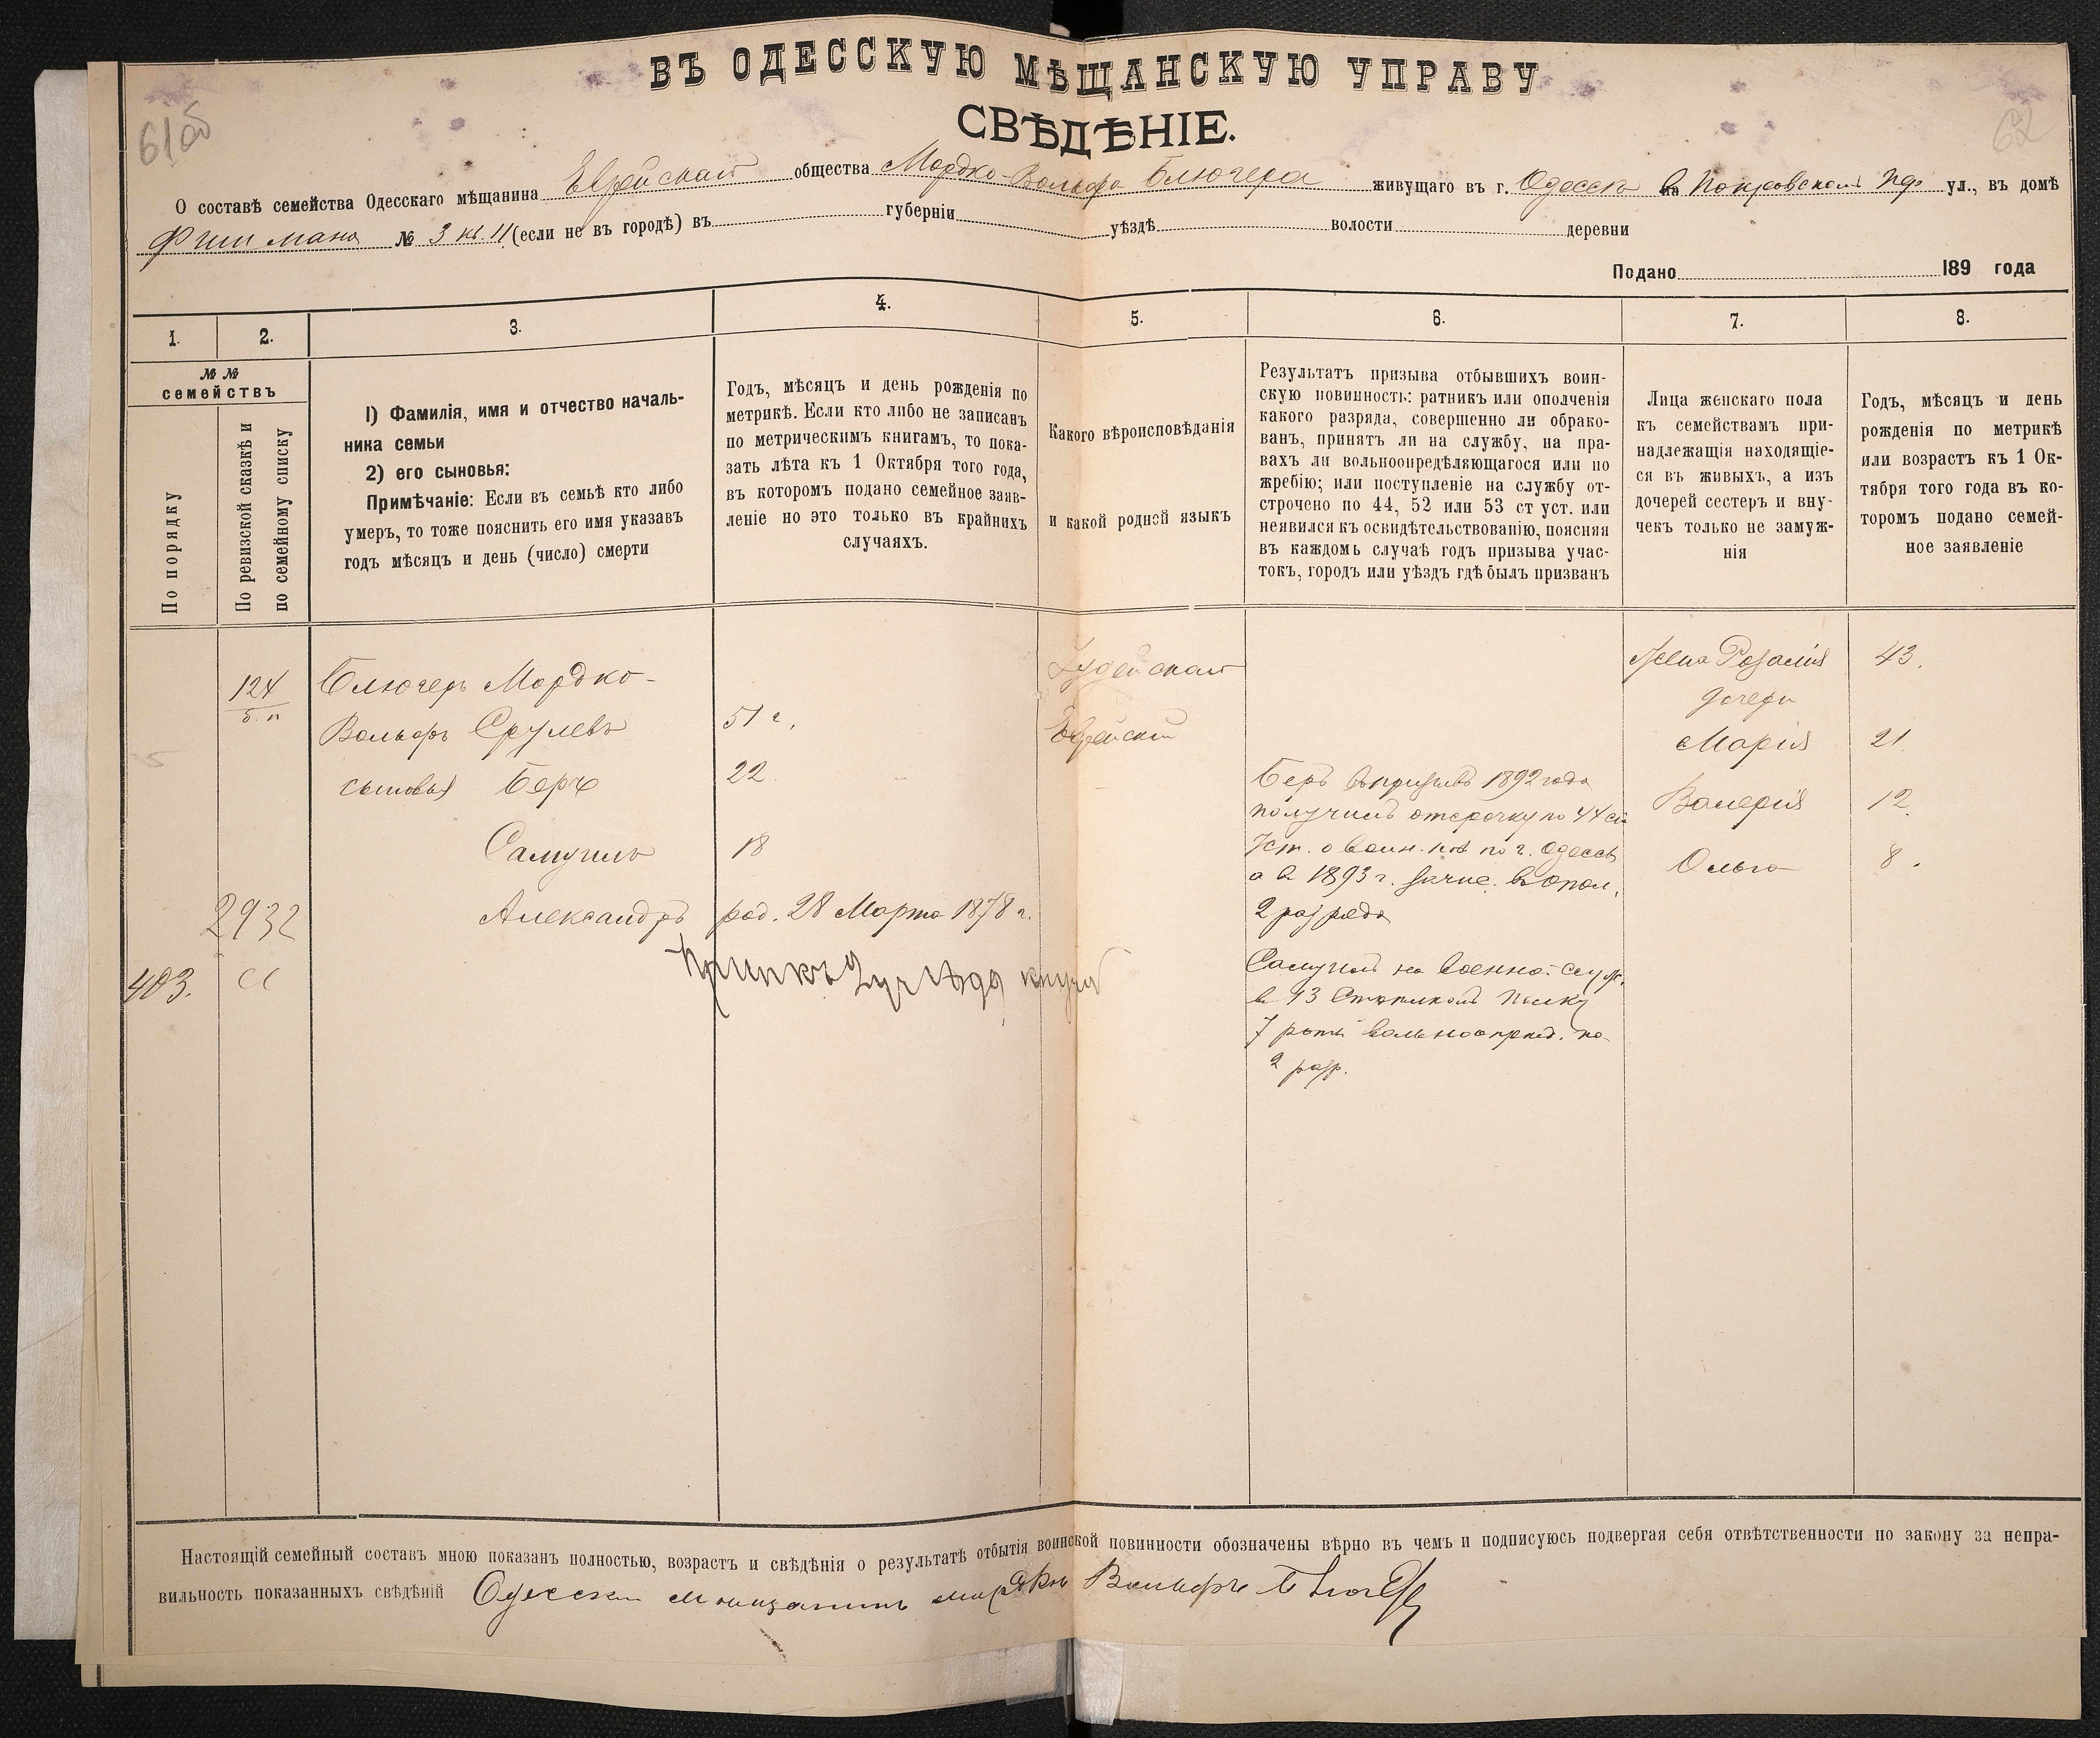 ВЪ ОДЕССКУЮ МѢЩАНСКУЮ УПРАВУ
СВѢДѢНІЕ.
61об
62
О составѣ семейства Одесскаго мѣщанина Еврейскаго общества Мордко-Вольфа Блюгера живущаго въ г. Одессѣ на Покровскомъ пер ул., въ домѣ
Фишмана № 3 кв. 11 (если не въ городѣ) въ губерніи уѣздѣ волости деревни
Подано 189 года
1.
2.
3.
4.
5.
6.
7.
8.
№ №
семействъ
По порядку
По ревизской сказкѣ и
по семейному списку
1) Фамилія, имя и отчество началь-
ника семьи
2) его сыновья:
Примѣчаніе: Если въ семьѣ кто либо
умеръ, то тоже пояснить его имя указавъ
годъ мѣсяцъ и день (число) смерти
Годъ, мѣсяцъ и день рожденія по
метрикѣ. Если кто либо не записанъ
по метрическимъ книгамъ, то пока-
зать лѣта къ 1 Октября того года,
въ которомъ подано семейное заяв-
леніе но это только въ крайнихъ
случаяхъ.
Какого вѣроисповѣданія
и какой родной языкъ
Результатъ призыва отбывшихъ воин-
скую повинность: ратникъ или ополченія
какого разряда, совершенно ли обрако-
ванъ, принятъ ли на службу, на пра-
вахъ ли вольноопредѣляющагося или по
жребію; или поступленіе на службу от-
строчено по 44, 52 или 53 ст уст. или
неявился къ освидѣтельствованію, поясняя
въ каждомъ случаѣ годъ призыва учас-
токъ, городъ или уѣздъ гдѣ былъ призванъ
Лица женскаго пола
къ семействамъ при-
надлежащія находящіе-
ся въ живыхъ, а изъ
дочерей сестеръ и вну-
чекъ только не замуж-
нія
Годъ, мѣсяцъ и день
рожденія по метрикѣ
или возрастъ къ 1 Ок-
тября того года въ ко-
торомъ подано семей-
ное заявленіе
124
Блюгеръ Мордко-
Вольфъ Срулевъ
51 г.
Іудейскаго
Еврейскій
Жена Розалія
43.
дочери
Марія
21.
Валерія
12.
Ольга
8.
сыновья Беръ
22.
Самуилъ
18
Александръ
род. 28 Марта 1878 г.
Беръ въ призывъ 1892 года
получилъ отсрочку по 44 ст
Уст. о воин. пов по г. Одессѣ
а въ 1893 г. зачис. въ опол.
2 разряда
Самуилъ на военной служ.
в 43 полку
7 роты вольноопред. по
2 разр.
2932
403.
Настоящій семейный составъ мною показанъ полностью, возрастъ и свѣдѣнія о результатѣ отбытія воинской повинности обозначены вѣрно въ чемъ и подписуюсь подвергая себя отвѣтственности по закону за непра-
вильность показанныхъ свѣдѣній Одесски мещанинъ Мордко Вольфъ Блюгеръ